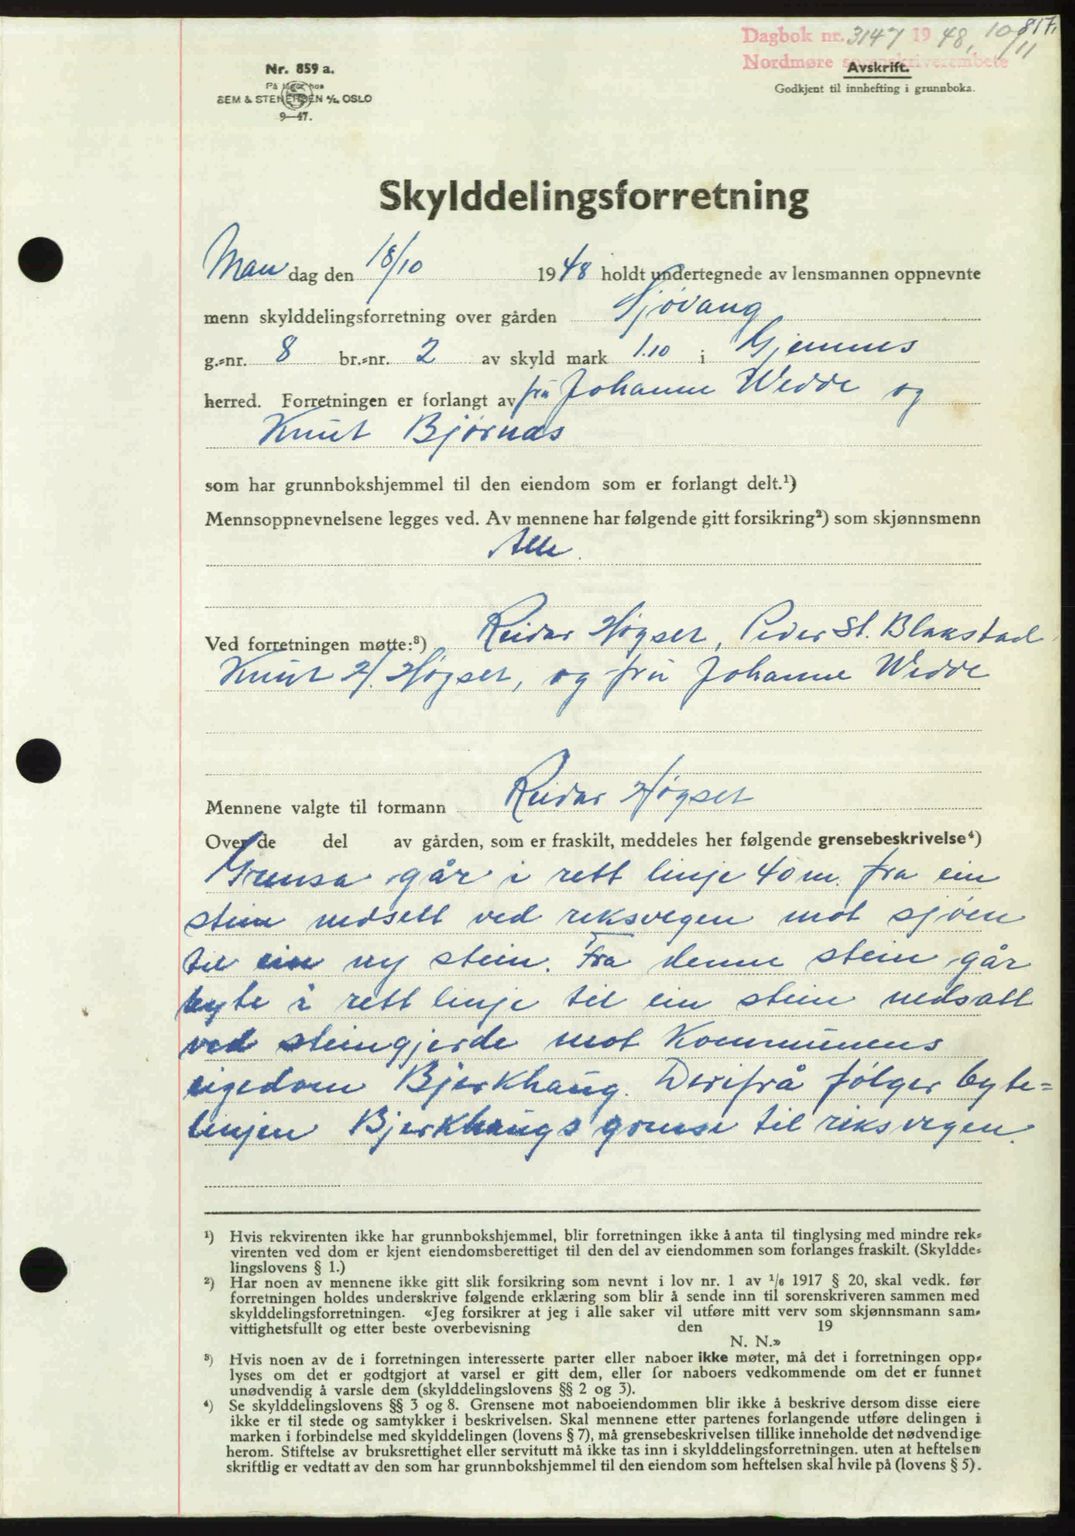 817.
Dagbok nr. 3147 1948, 10/11
Nordmøre sorenskriverembete
Nr. 859 a.
På lager hos
SEM & STENERSEN A/S, OSLO
9—47.
Avskrift.
Godkjent til innhefting i grunnboka.
Skylddelingsforretning
Man dag den 18/10 1948 holdt undertegnede av lensmannen oppnevnte
menn skylddelingsforretning over gården Sjøvang
g.-nr. 8 br.-nr. 2 av skyld mark 1.10 i Gjemnes
herred. Forretningen er forlangt av fru Johanne Wedde og
Knut Bjørnås
som har grunnbokshjemmel til den eiendom som er forlangt delt.¹)
Mennsoppnevnelsene legges ved. Av mennene har følgende gitt forsikring²) som skjønnsmenn
Alle.
Ved forretningen møtte:³) Reidar Høgset, Peder St. Blakstad
Knut H. Høgset, og fru Johanne Wedde
Mennene valgte til formann Reidar Høgset
Over de del av gården, som er fraskilt, meddeles her følgende grensebeskrivelse⁴)
Grensa går i rett linje 40 m. fra ein
stein nedsett ved reksvegen mot sjøen
til ein ny stein. Fra denne stein går
byte i rett linje til ein stein nedsatt
ved steingjerde mot Kommunens
eigedom Bjerkhaug. Derifrå følger byte=
linjen Bjerkhaugs grense til riksvegen.
¹) Hvis rekvirenten ikke har grunnbokshjemmel, blir forretningen ikke å anta til tinglysing med mindre rek-
virenten ved dom er kjent eiendomsberettiget til den del av eiendommen som forlanges fraskilt. (Skyldde-
lingslovens § 1.)
²) Har noen av mennene ikke gitt slik forsikring som nevnt i lov nr. 1 av ¹/₆ 1917 § 20, skal vedk. før
forretningen holdes underskrive følgende erklæring som blir å sende inn til sorenskriveren sammen med
skylddelingsforretningen. «Jeg forsikrer at jeg i alle saker vil utføre mitt verv som skjønnsmann sam-
vittighetsfullt og etter beste overbevisning den 19
N. N.»
³) Hvis noen av de i forretningen interesserte parter eller naboer ikke møter, må det i forretningen opp-
lyses om det er godtgjort at varsel er gitt dem, eller for naboers vedkommende om det er funnet
unødvendig å varsle dem (skylddelingslovens §§ 2 og 3).
⁴) Se skylddelingslovens §§ 3 og 8. Grensene mot naboeiendommen blir ikke å beskrive dersom disse eiere
ikke er til stede og samtykker i beskrivelsen. Skal mennene etter partenes forlangende utføre delingen i
marken i forbindelse med skylddelingen (lovens § 7), må grensebeskrivelsen tillike inneholde det nødvendige
herom. Stiftelse av bruksrettighet eller servitutt må ikke tas inn i skylddelingsforretningen. uten at heftelsen
skriftlig er vedtatt av den som har grunnbokshjemmel til den eiendom som heftelsen skal hvile på (lovens § 5).